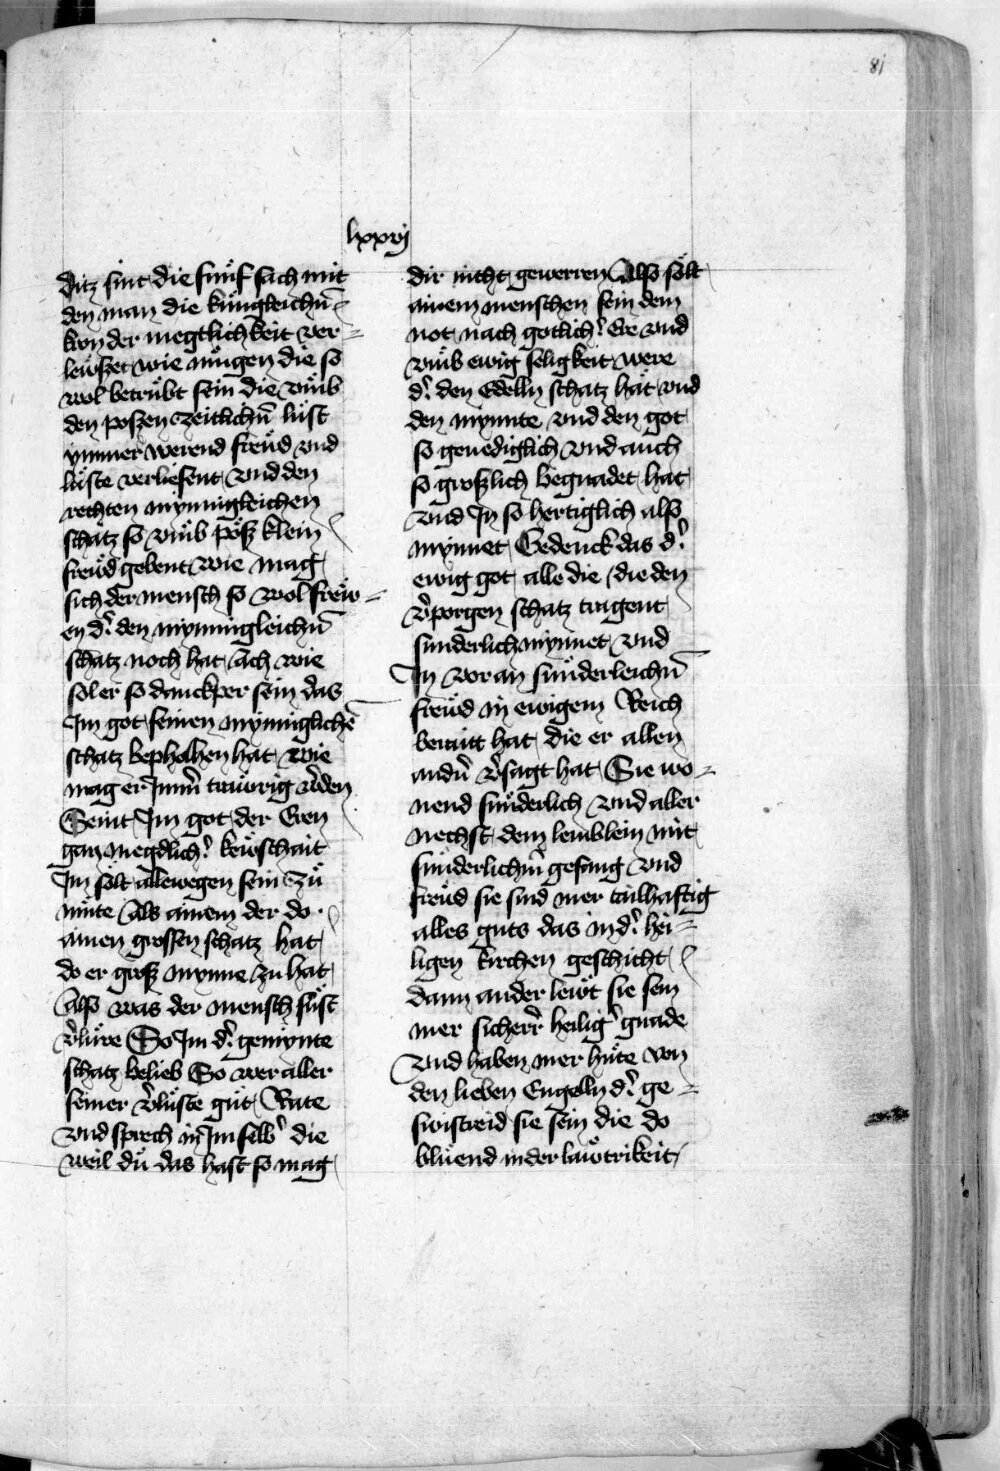 81
lxxvj
Ditz sint die fuͤnf sach mit
den man die kuͤngleichn̄
kron der megtlichkeit ver-
leuͤszet wie muͤgen die so
wol betruͤbt sein die vmb
den poszen zeitlichn̄ lust
ymmer werend freuͤd vnd
luͤste verliesent vnd den
rechten mynnigleichen
schatz so vmb poͤsz klein
freuͤd gebent wie mag
sich der mensch so wol freuͤ-
en d̕ den mynnigleichn̄
schatz noch hat Ach wie
sol er so danckper sein das
Im got seinen mynniglichē
schatz bepholhen hat wie
mag er Imm̄ trauͤrig w̕den
Seint Im got der Eren
gan megdlich̕ keuͤschait
Im soͤlt allewegen sein zuͤ
mute Als ainem der do
ainen grossen schatz hat
do er grosz mynne zu hat
Also was der mensch suͤst
v̕luͤre So Im d̕ gemynte
schatz belieb So wer aller
seiner v̕luͤste guͤt Rate
vnd sprech in Im selb̕ die
weil duͤ das hast so mag
dir nicht gewerren Also soͤlt
ainem menschen sein dem
not nach gotlich̕ Ere vnd
vmb ewig seligkeit were
d̕ den Edelln schatz hat vnd
den mynnte vnd den got
so genediglich vnd auch
so groszlich begnadet hat
vnd In so hertiglich also
mynnet Gedenck das d̕
ewig got alle die die den
v̕porgen schatz tragent
sunderlich mynnet vnd
In voran suͤnderleichn̄
freuͤd in ewigem Reich
beraitt hat die er allen
andn̄ v̕sagt hat Sie wo-
nend suͤnderlich vnd aller
nechst dem lemblein mit
suͤnderlichm̄ gesang vnd
freuͤd sie sind mer tailhaftig
alles guts das in d̕ hei-
ligen kirchen geschicht
dann ander leuͤt sie sein
mer sicherr̄ heilig̕ gnade
vnd haben mer huͤte von
den lieben Engelln d̕ ge-
swistreid sie sein die do
bluͤend in der lauͤtrikeit